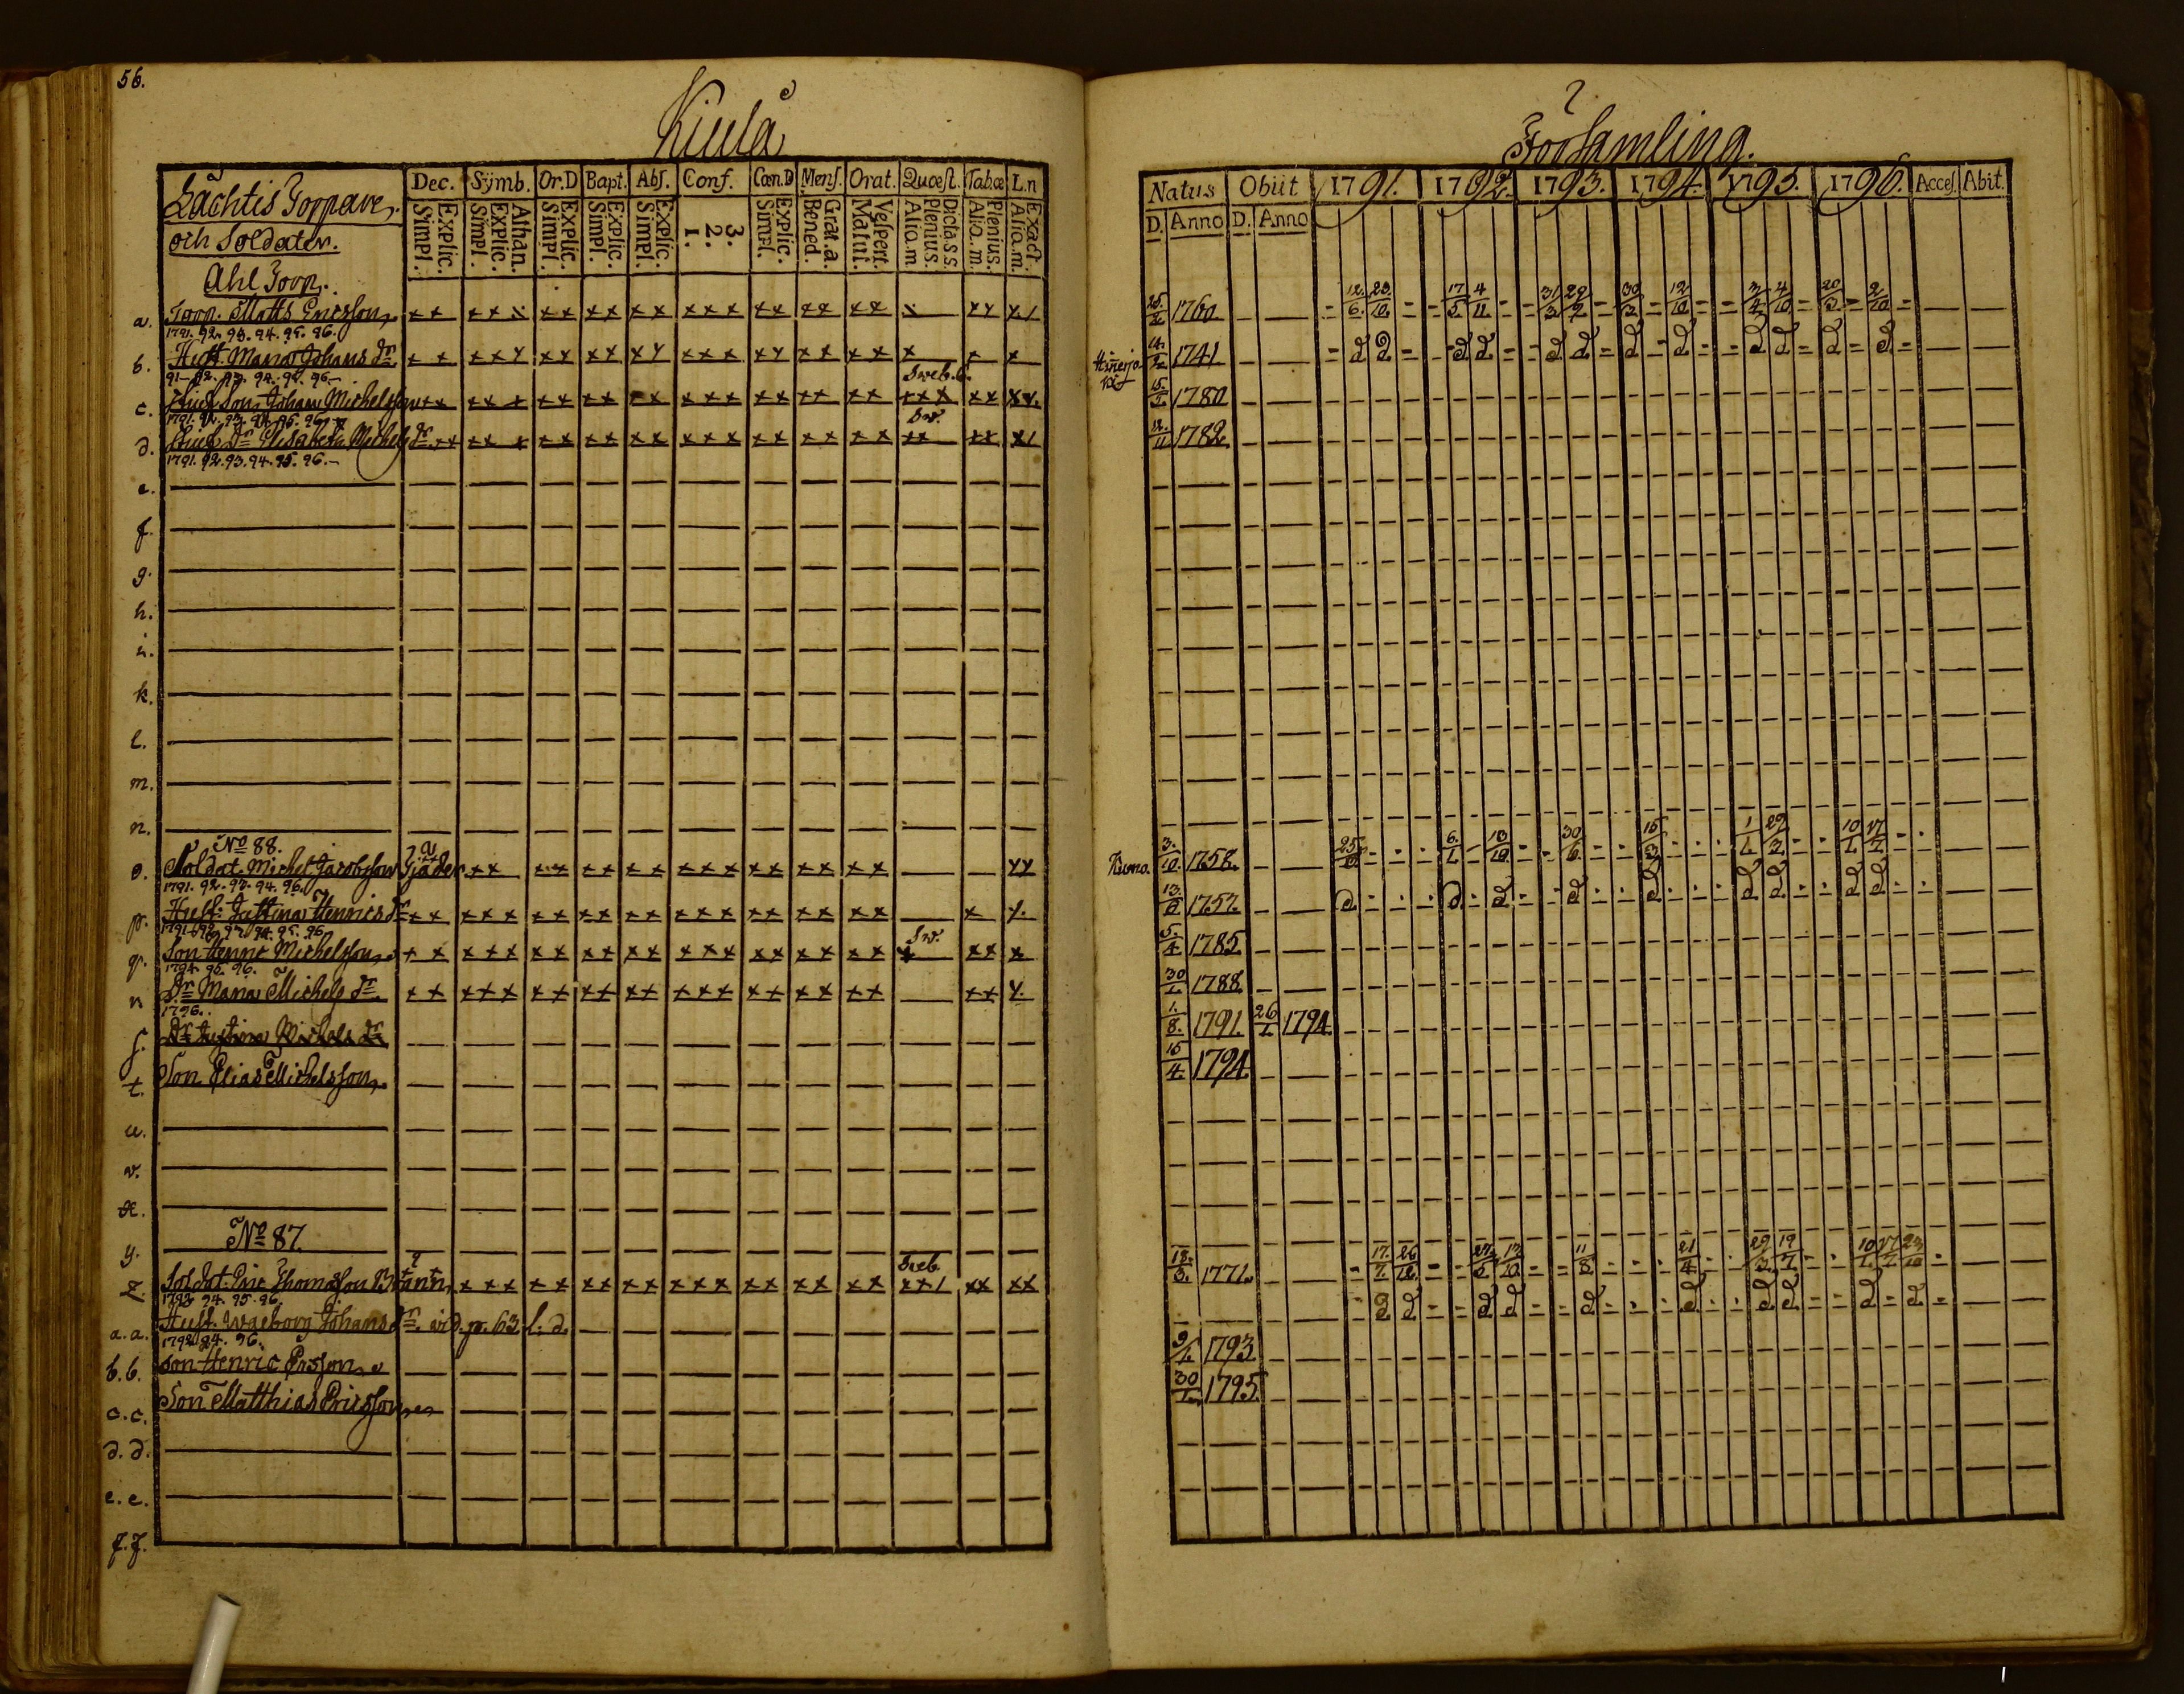 56.
Kiula
Församling.
Lachtis Torppare,
och Soldater.
Dec. Symb. Or.D Bapt. Abs. Conf. Cœn.D Mens. Orat. Quæst. Tab.œ L.n
Simpl. Explic. Simpl. Explic. Athan. Simpl. Explic. Simpl. Explic. Simpl. Explic. 1. 2. 3. Simpl. Explic. Bened. Grat.a. Matut. Vespert. Alio.m Plenius. Dicta.s.s. Alio.m. Plenius. Alio.m. Exact.
Natus Obiit 1791. 1792. 1793. 1794. 1795. 1796. Acces. Abit.
D. Anno D. Anno
Ahl Torp.
a. Torp. Matts Ericsson 25. 1760 12/6. 23/10. 17/5 4/11. 31/3 29/9 30/3 12/10 3/4 4/10 20/3 2/10
1791. 92. 93. 94. 95. 96.
b. Hust. Maria Johans dr. 1741 d d d d d d d d d d d d
91. 92. 93. 94. 95. 96.
Sveb.
c. Johan Michelsson 1780
1791. 92. 93. 94. 95. 96.
Sv.
d. Elisabeth Michels dr. 12/11 1782
1791. 92. 93. 94. 95. 96.
e.
f.
g.
h.
i.
k.
l.
m.
n.
No 88.
o. Soldat. Michel Jacobsson Fjäder Kumo. 3./10. 1758. 6/1 13/10 30/6 15/3 1/1 29/3 10/1 17/7
1791. 92. 93. 94. 96.
p. Hust. Justina Henrics dr 1757. d d d d d d d d d
1791. 92. 93. 94. 95. 96
Sv.
q. Son Henric Michelsson 5./4. 1785
1794. 95. 96.
r. Dr. Maria Michels dr. 30/1. 1788
1796.
s. Dr Justina Michels dr 1./8. 1791. 26/1 1794.
t. Son Elias Michelsson 15/4. 1794.
u.
v.
x.
No 87.
y.
Sveb.
z. Soldat. Eric Thomasson Brann 18./3. 1771. 17./7. 26/12. 27/5 13/10 11/8 21/4 29/3 19/7 10/1. 17/7 23/10
1793. 94. 95. 96.
a.a. Hust. Waborg Johans dr. vid. p. 63. l. d. d d d d d d d d d d
94. 96.
b.b. Son Henric Ersson 9/1. 1793.
c.c. Son Matthias Ericsson 30/1. 1795.
d.d.
e.e.
f.f.